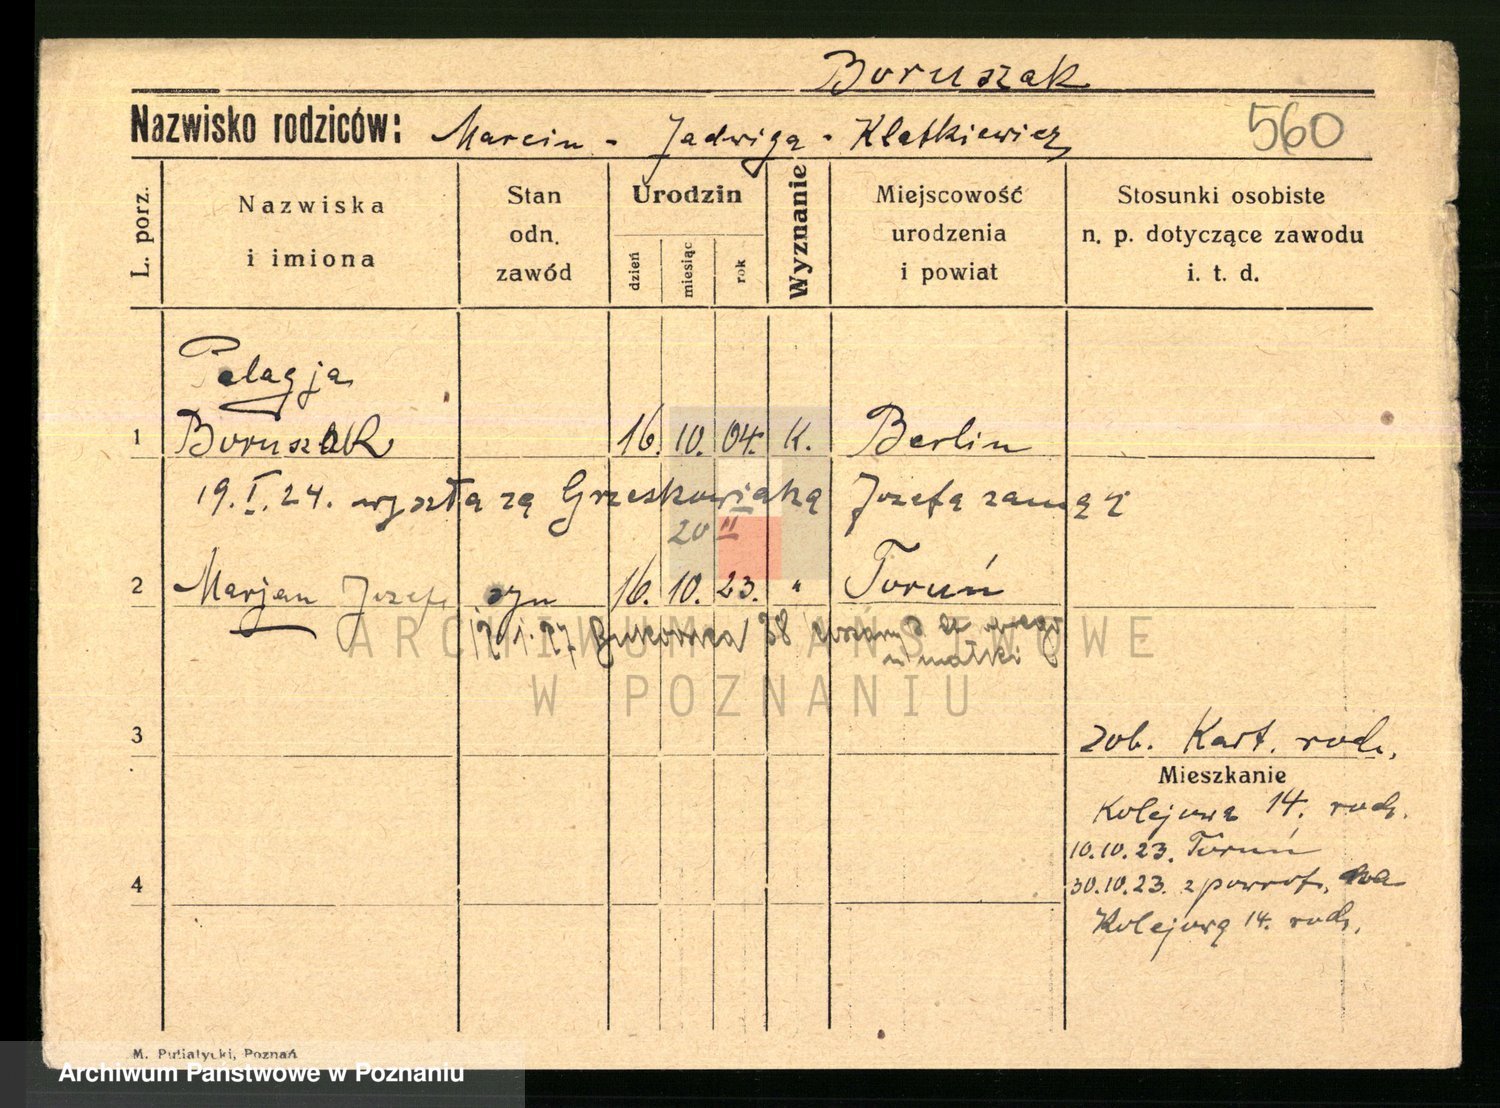 Boruszak
Nazwisko rodziców: Marcin - Jadwiga - Kletkiewicz
560
L. porz.
Nazwiska
i imiona
Stan
odn.
zawód
Urodzin
dzień
miesiąc
rok
Wyznanie
Miejscowość
urodzenia
i powiat
Stosunki osobiste
n. p. dotyczące zawodu
i. t. d.
Pelagja
1 Boruszak 16. 10. 04. K. Berlin
19.I.24. wyszła zą Grzeskowiaką Jozefą zamąż
20 II
2 Marjan Jozef syn 16. 10. 23. " Toruń
12.1.27 Bukowska 38
u matki
3 zob. Kart. rodz.
Mieszkanie
Kolejowa 14. rodz.
10.10.23. Toruń
30.10.23. z powrot. na
4
Kolejową 14. rodz.
M. Putiatycki, Poznań
ARCHIWUM PAŃSTWOWE
W POZNANIU
Archiwum Państwowe w Poznaniu